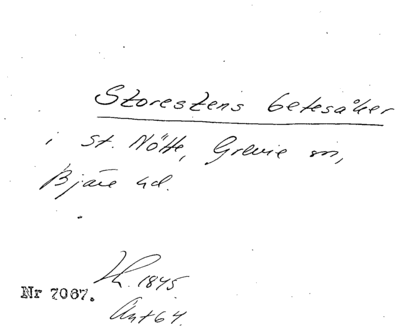 Storestens betesåker
i St. Nötte, Grevie sn,
Bjäre hd.
1845
Nr 7067.
Ant 64.